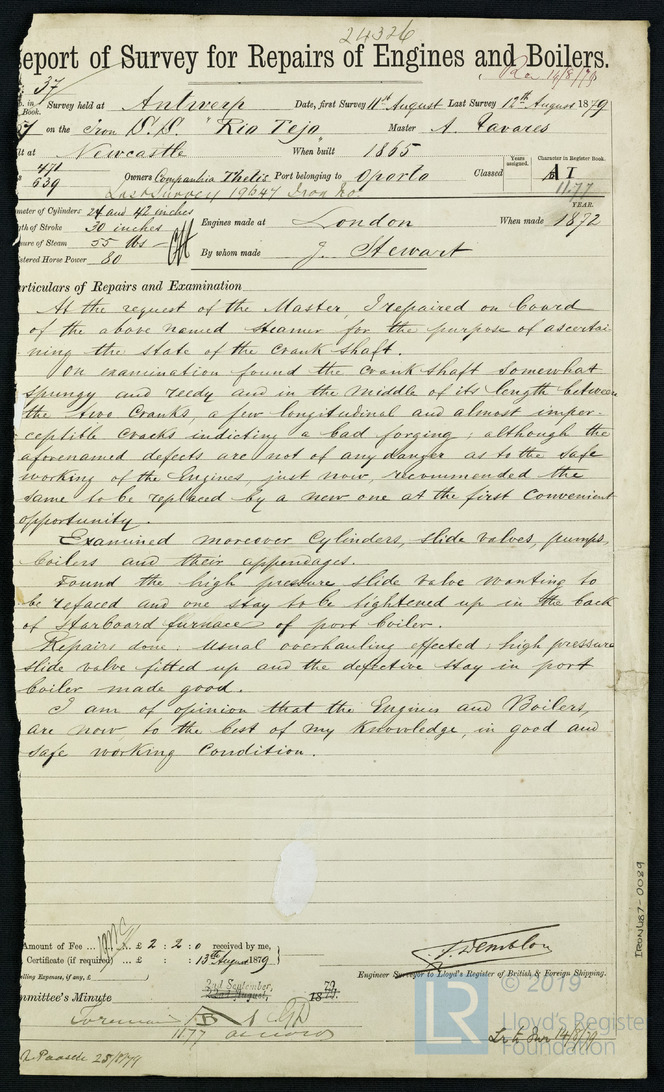 24326
eport of Survey for Repairs of Engines and Boilers.
16/8/79
37
b. in Book. Survey held at Antwerp Date, first Survey 11th August Last Survey 12th August 1879
on the iron S.S. "Rio Tejo" Master A. Tavares
lt at Newcastle When built 1865
471
639 Owners Companhia Thetis Port belonging to Oporto Classed Years assigned. Character in Register Book. A I
Last Survey 19647 Iron Ko 11.77
meter of Cylinders 24 and 42 inches
gth of Stroke 30 inches
sure of Steam 55 lbs
stered Horse Power 80
Engines made at London When made YEAR. 1872
By whom made J. Stewart
rticulars of Repairs and Examination
At the request of the Master, I repaired on board
of the above named steamer for the purpose of ascertai-
ning the state of the crank shaft.
On examination found the crank shaft somewhat
spungy and reedy and in the middle of its length between
the two cranks, a few longitudinal and almost imper-
ceptible cracks indicting a bad forging; although the
aforenamed defects are not of any danger as to the safe
working of the Engines, just now, recommended the
same to be replaced by a new one at the first convenient
opportunity.
Examined moreover Cylinders, slide valves, pumps,
boilers and their appendages.
Found the high pressure slide valve wanting to
be refaced and one stay to be tightened up in the back
of starboard furnace of port boiler.
Repairs done: Usual overhauling effected, high pressure
slide valve fitted up and the defective stay in port
boiler made good.
I am of opinion that the Engines and Boilers,
are now, to the best of my knowledge, in good and
safe working condition.
Amount of Fee ... £ 2 : 2 : 0 received by me,
Certificate (if required) ... £ : : 13th August 1879
elling Expenses, if any, £
J. Demblon
Engineer Surveyor to Lloyd's Register of British & Foreign Shipping.
mmittee's Minute 3rd September, 22nd August, 1879
B 1
1177
25/8/79
14/8/79
IRON487-0029
© 2019
LR
Lloyd's Register
Foundation